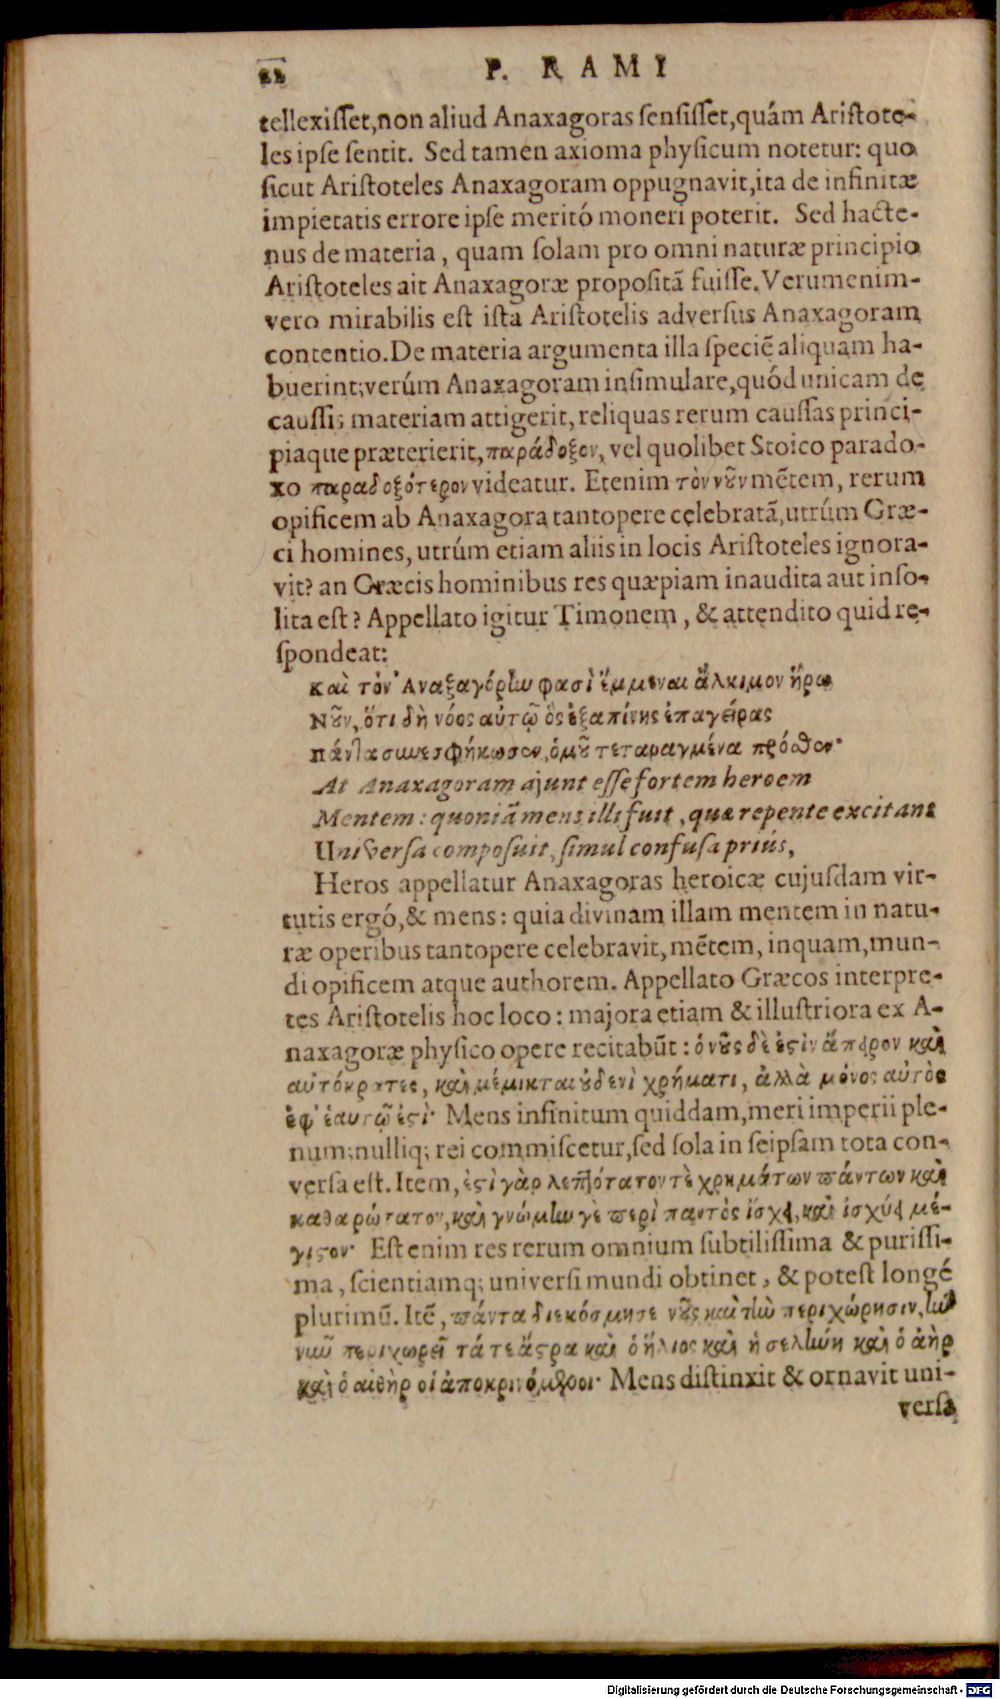 22 P. RAMI
tellexiſſet,non aliud Anaxagoras ſenſiſſet,quám Ariſtote-
les ipſe ſentit. Sed tamen axioma phyſicum notetur: quo
ſicut Ariſtoteles Anaxagoram oppugnavit,ita de infinitæ
impietatis errore ipſe meritó moneri poterit. Sed hacte-
nus de materia, quam ſolam pro omni naturæ principio
Ariſtoteles ait Anaxagoræ propoſitã fuiſſe. Verumenim-
vero mirabilis eſt iſta Ariſtotelis adverſus Anaxagoram
contentio. De materia argumenta illa ſpeciẽ aliquam ha-
buerint;verúm Anaxagoram inſimulare,quód unicam de
cauſſis materiam attigerit, reliquas rerum cauſſas princi-
piaque præterierit, παράδοξον, vel quolibet Stoico parado-
xo παραδοξότερον videatur. Etenim τὸν νοῦν mẽtem, rerum
opificem ab Anaxagora tantopere celebratã,utrúm Græ-
ci homines, utrúm etiam aliis in locis Ariſtoteles ignora-
vit? an Græcis hominibus res quæpiam inaudita aut inſo-
lita eſt? Appellato igitur Timonem, & attendito quid re-
ſpondeat:
Καὶ τὸν Ἀναξαγόρην φασὶ ἔμμεναι ἄλκιμον ἥρω
Νοῦν, ὅτι δὴ νόος αὐτῷ ὃς ἐξαπίνης ἐπαγείρας
Πάντα συνεσφήκωσεν, ὁμοῦ τεταραγμένα πρόσθεν·
At Anaxagoram ajunt eſſe fortem heroem
Mentem: quoniã mens illi fuit, quæ repente excitans
Univerſa compoſuit, ſimul confuſa priús,
Heros appellatur Anaxagoras heroicæ cujuſdam vir-
tutis ergó,& mens: quia divinam illam mentem in natu-
ræ operibus tantopere celebravit, mẽtem, inquam, mun-
di opificem atque authorem. Appellato Græcos interpre-
tes Ariſtotelis hoc loco: majora etiam & illuſtriora ex A-
naxagoræ phyſico opere recitabũt: ὁ νοῦς δὲ ἐστὶν ἄπειρον καὶ
αὐτόκρατες, καὶ μέμικται οὐδενὶ χρήματι, ἀλλὰ μόνος αὐτὸς
ἐφ' ἑαυτῷ ἐστί· Mens infinitum quiddam, meri imperii ple-
num;nulliq; rei commiſcetur,ſed ſola in ſeipſam tota con-
verſa eſt. Item, ἐστὶ γὰρ λεπτότατον τὲ χρημάτων πάντων καὶ
καθαρώτατον, καὶ γνώμην γὲ περὶ παντὸς ἴσχει, καὶ ἰσχύει μέ-
γιστον· Eſt enim res rerum omnium ſubtiliſſima & puriſſi-
ma, ſcientiamq; univerſi mundi obtinet, & poteſt longé
plurimũ. Itẽ, πάντα διεκόσμησε νοῦς καὶ τὴν περιχώρησιν, ἣν
νῦν περιχωρεῖ τά τε ἄστρα καὶ ὁ ἥλιος καὶ ἡ σελήνη καὶ ὁ ἀὴρ
καὶ ὁ αἰθὴρ οἱ ἀποκρινόμενοι· Mens diſtinxit & ornavit uni-
verſa
Digitalisierung gefördert durch die Deutsche Forschungsgemeinschaft - DFG